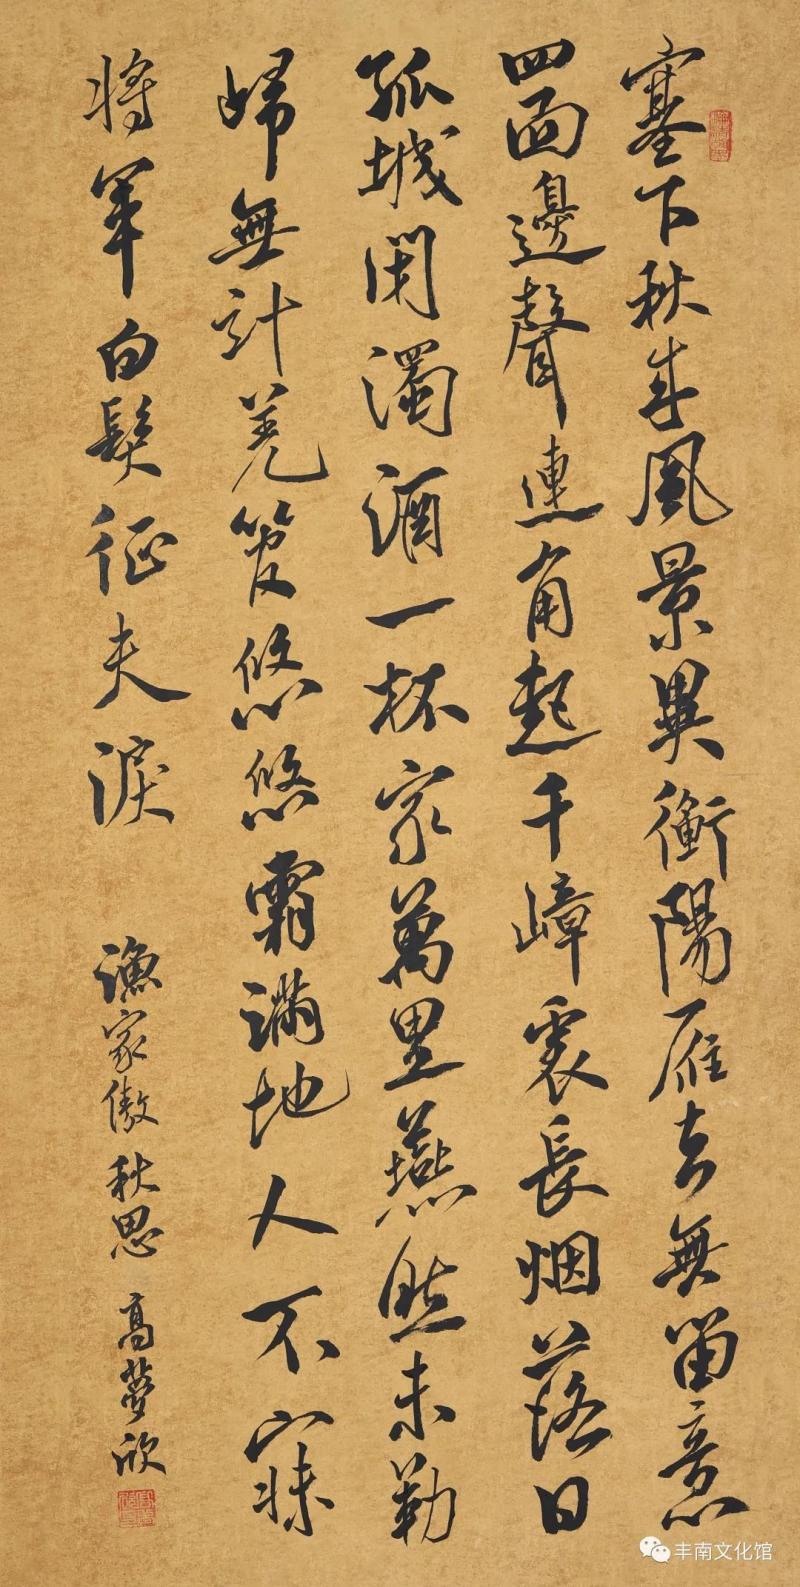 塞下秋来風景異衡陽雁去無留意
四面邊聲連角起千嶂裏長烟落日
孤城閉濁酒一杯家萬里燕然未勒
歸無計羌管悠悠霜滿地人不寐
將軍白髮征夫淚
漁家傲秋思 高夢欣
丰南文化馆